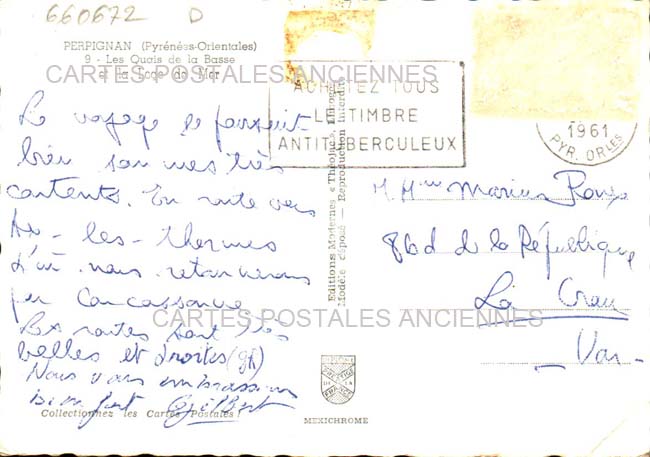 660672 D
PERPIGNAN (Pyrénées-Orientales)
9 - Les Quais de la Basse
et la Loge de Mer
CARTES POSTALES ANCIENNES
ACHETEZ TOUS
LE TIMBRE
ANTITUBERCULEUX
1961
PYR. ORLES
Le voyage se poursuit
bien sommes très
contents. En route vers
Ax-les-thermes
d'où nous retournerons
par Carcassonne
Les routes sont très
belles et droites
Nous vous embrassons
bien fort Gilbert
Editions Modernes « Théojac », Limoges
Modèle déposé — Reproduction interdite
M. Mme Marius
86d de la République
La Crau
Var
CARTES POSTALES ANCIENNES
Collectionnez les Cartes Postales !
MEXICHROME